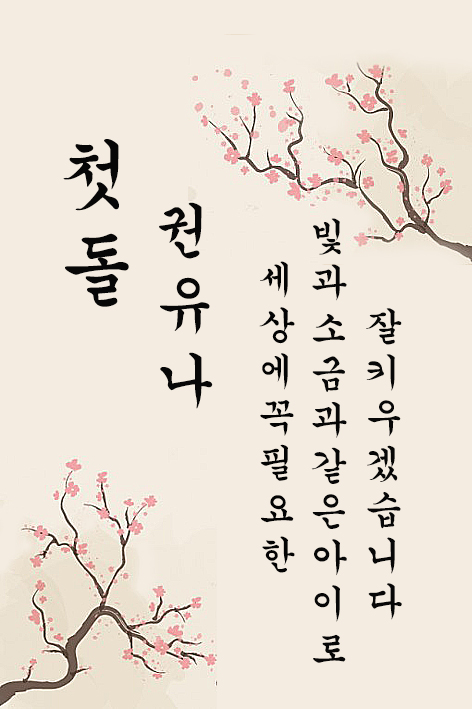 첫돌
권유나
세상에꼭필요한
빛과소금과같은아이로
잘키우겠습니다